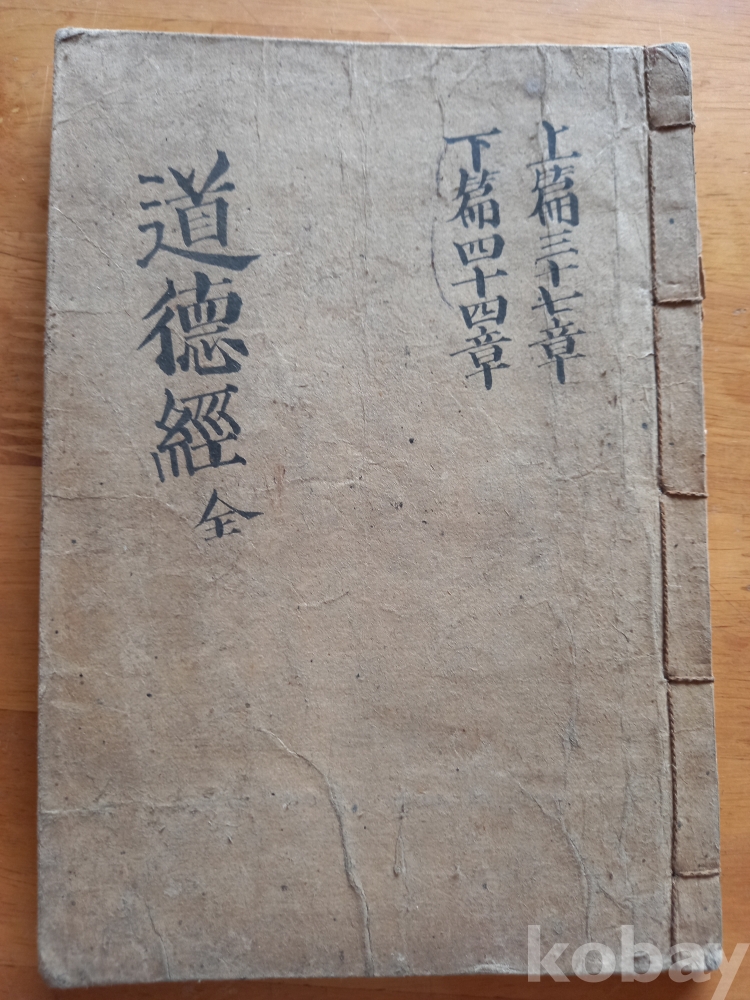 上篇三十七章
下篇四十四章
道德經 全
kobay